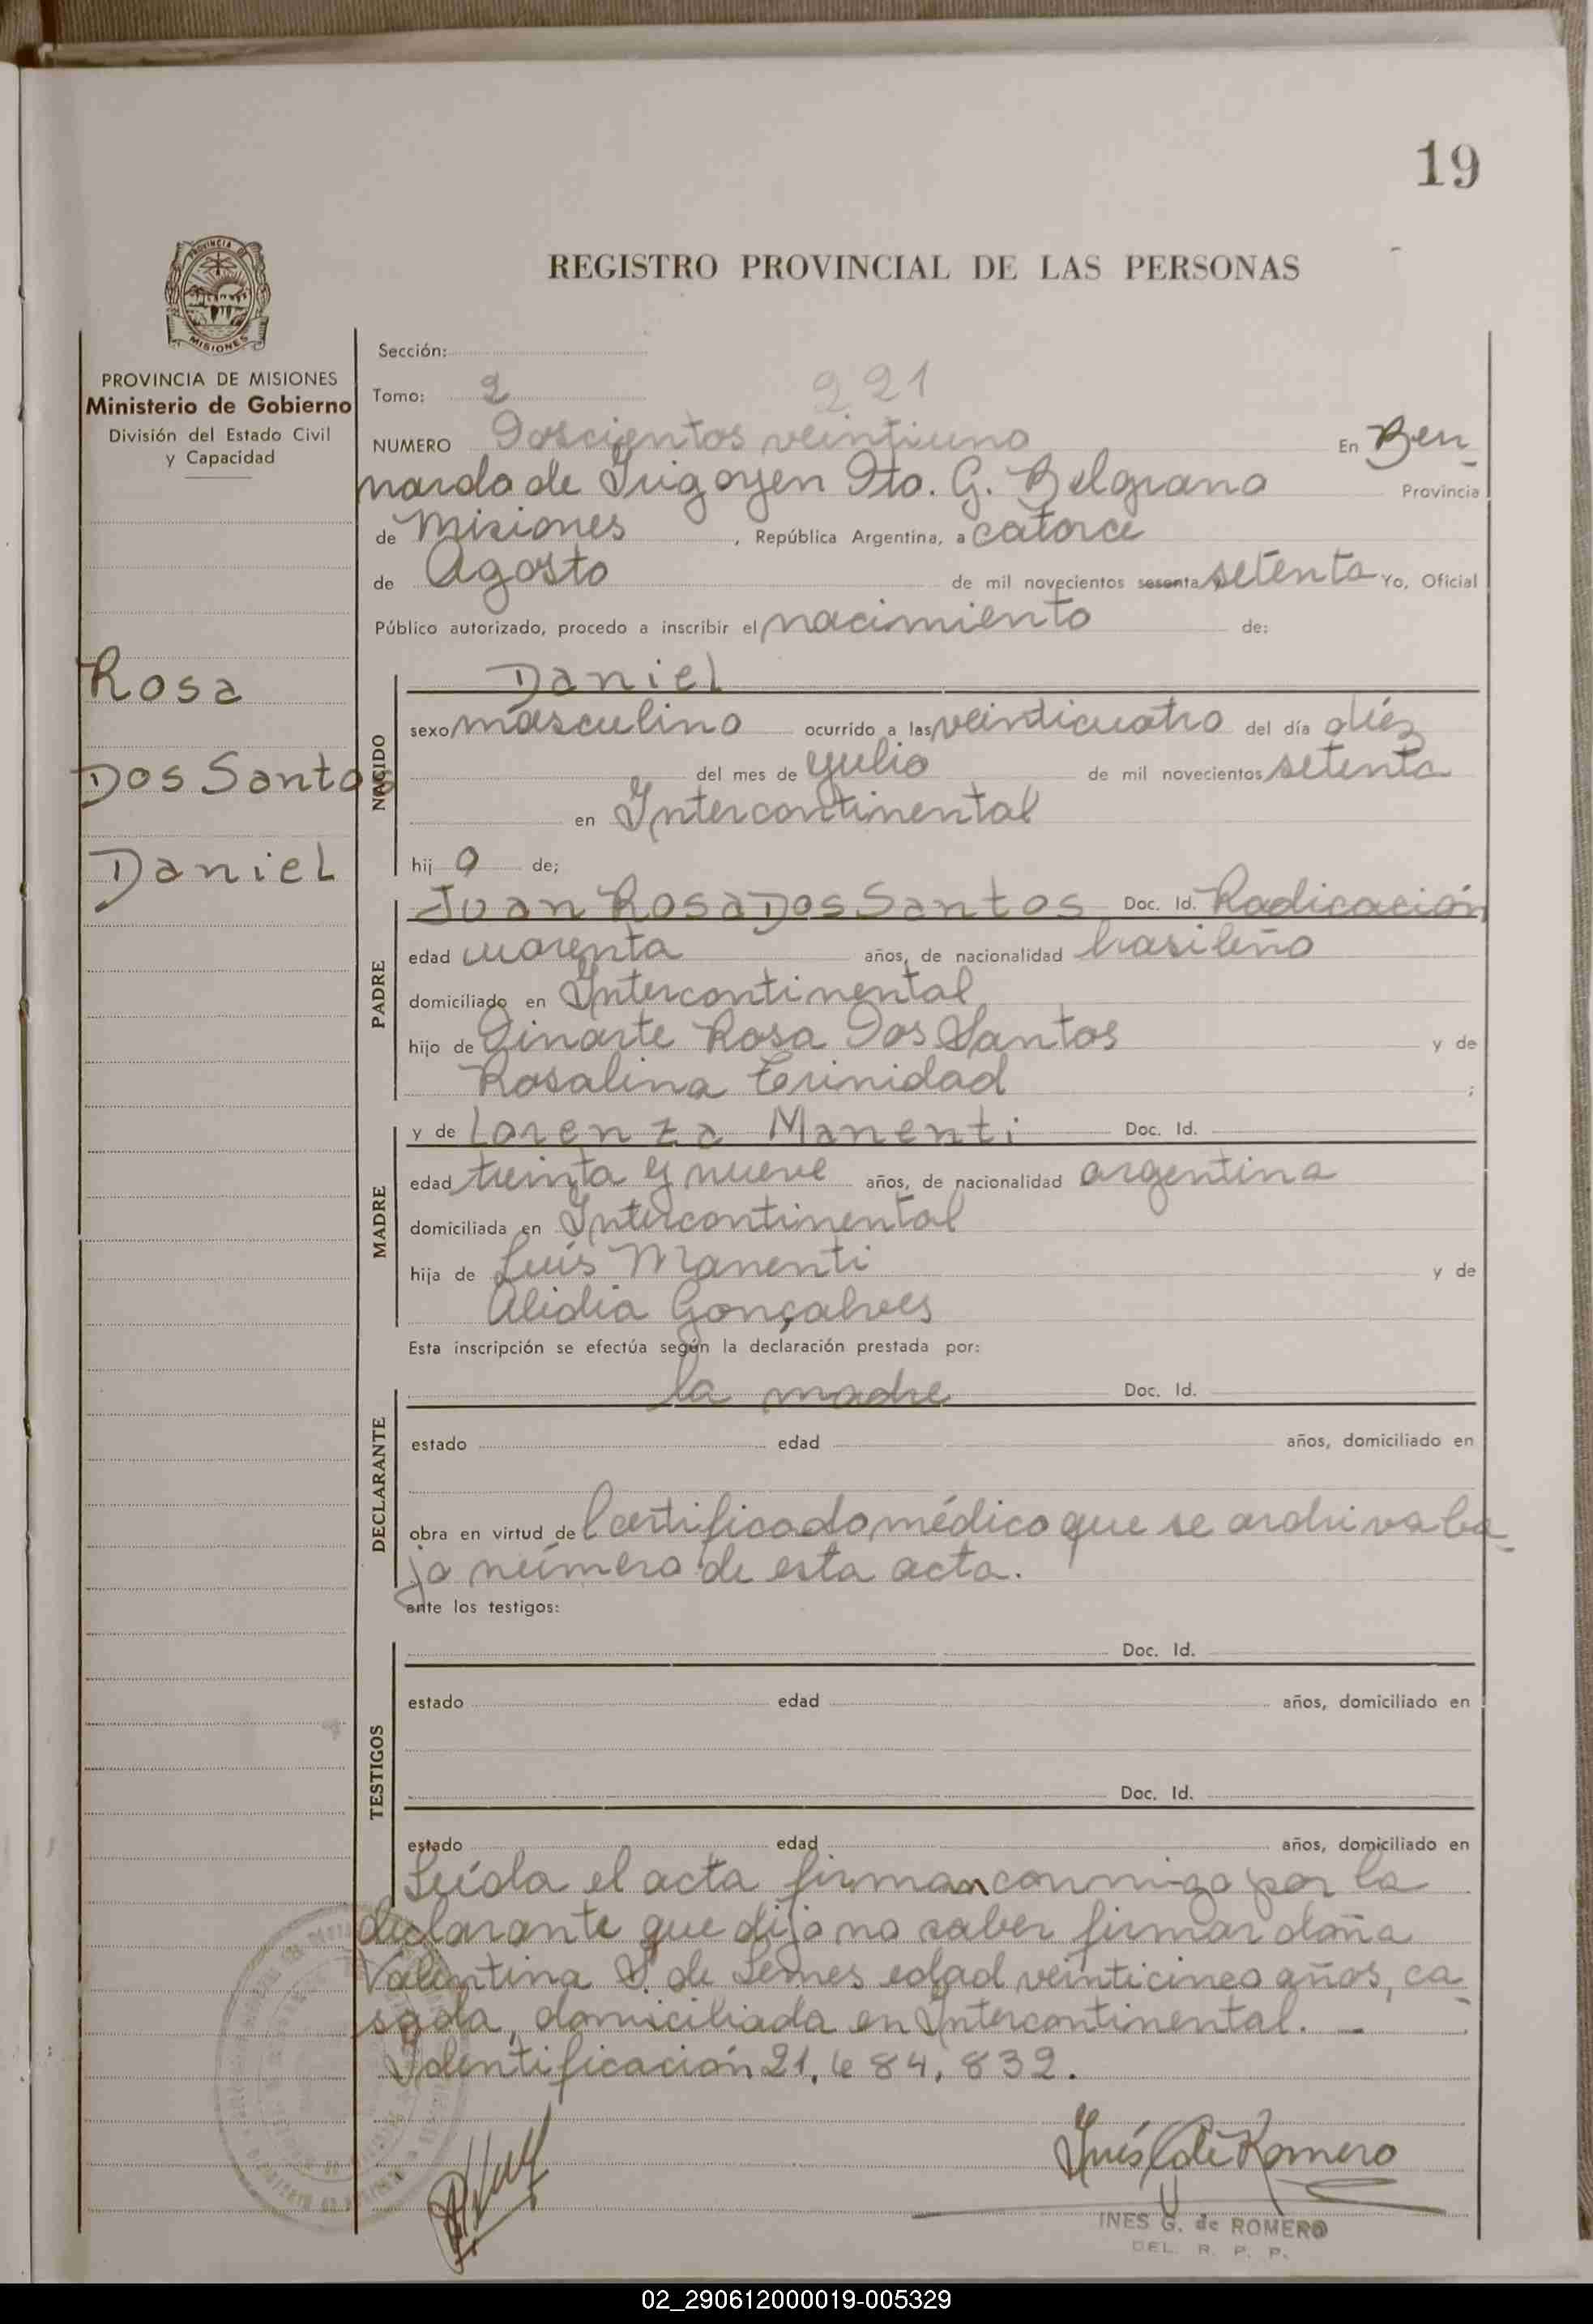 19
REGISTRO PROVINCIAL DE LAS PERSONAS
PROVINCIA DE
MISIONES
PROVINCIA DE MISIONES
Ministerio de Gobierno
División del Estado Civil
y Capacidad
Rosa
Dos Santos
Daniel
Sección:
Tomo: 2 221
NUMERO Doscientos veintiuno En Ber
nardo de Irigoyen Dto. G. Belgrano Provincia
de Misiones, República Argentina, a catorce
de Agosto de mil novecientos sesenta setenta Yo, Oficial
Público autorizado, procedo a inscribir el nacimiento de:
NACIDO
Daniel
sexo masculino ocurrido a las veinticuatro del día diéz
del mes de yulio de mil novecientos setenta
en Intercontinental
hij o de;
PADRE
Juan Rosa Dos Santos Doc. Id. Radicación
edad cuarenta años, de nacionalidad brasileño
domiciliado en Intercontinental
hijo de Dinarte Rosa Dos Santos y de
Rosalina Terinidad ;
MADRE
y de Lorenza Manenti Doc. Id.
edad treinta y nueve años, de nacionalidad argentina
domiciliada en Intercontinental
hija de Luis Manenti y de
Alidia Gonçalves
Esta inscripción se efectúa según la declaración prestada por:
DECLARANTE
la madre Doc. Id.
estado edad años, domiciliado en
obra en virtud de Certificado médico que se archiva ba
jo número de esta acta.
ante los testigos:
TESTIGOS
Doc. Id.
estado edad años, domiciliado en
Doc. Id.
estado edad años, domiciliado en
Leída el acta firman conmigo por la
declarante que dijo no saber firmar doña
Valentina S. de Lemes edad veinticinco años, ca
sada, domiciliada en Intercontinental. -
Identificación 21.684.832.
Inés G de Romero
INES G. de ROMERO
DEL. R. P. P.
02_290612000019-005329